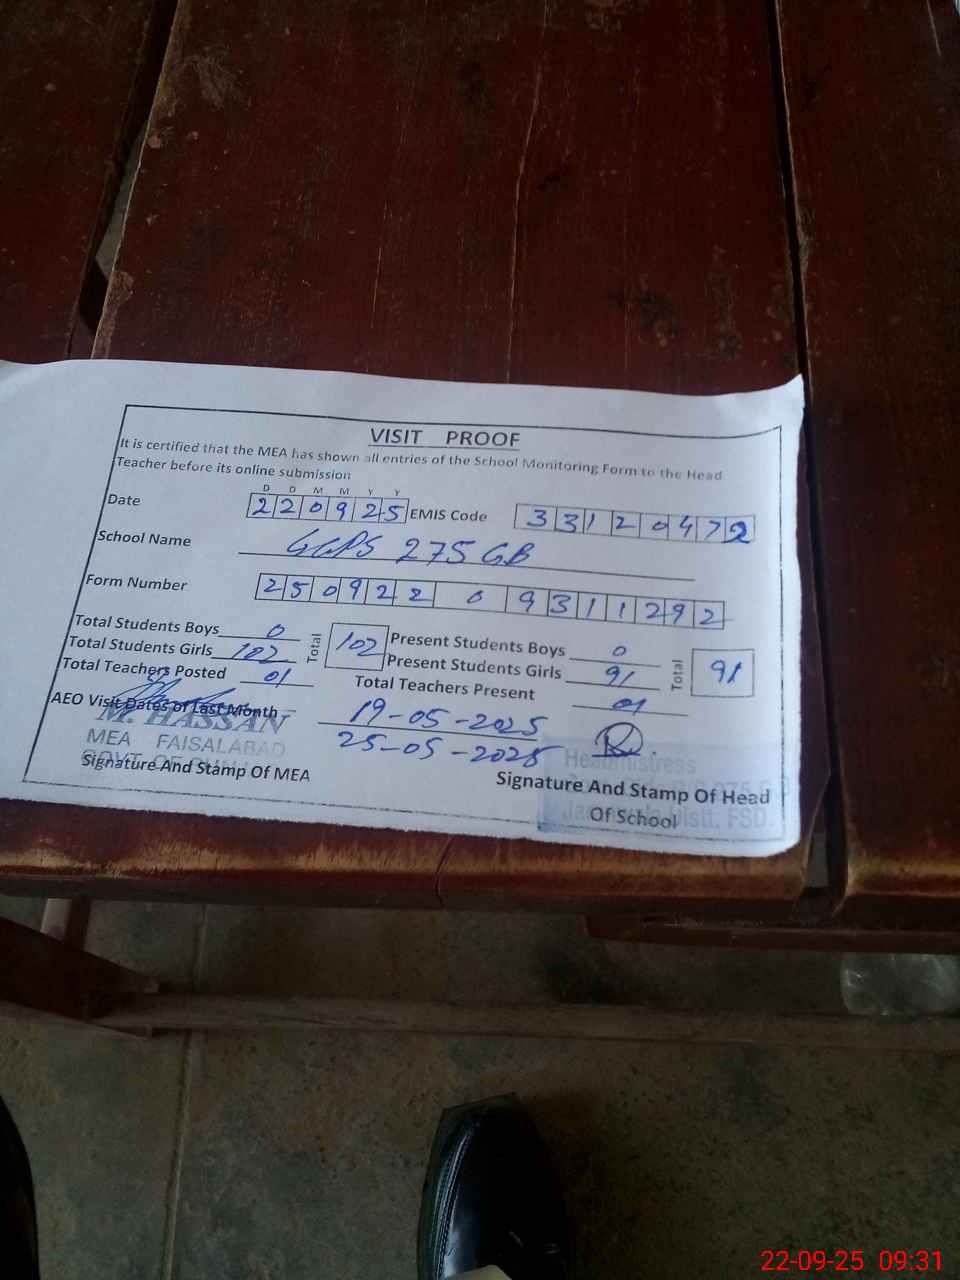 VISIT PROOF
It is certified that the MEA has shown all entries of the School Monitoring Form to the Head
Teacher before its online submission
D D M M Y Y
Date 220925 EMIS Code 33120472
School Name GGPS 275 GB
Form Number 25092209311292
Total Students Boys 0 Total 102 Present Students Boys 0 Total 91
Total Students Girls 102 Present Students Girls 91
Total Teachers Posted 01 Total Teachers Present 01
AEO Visit Dates of Last Month 19-05-2025
25-05-2025
M. HASSAN
MEA FAISALABAD
GOVT. OF
Signature And Stamp Of MEA
Headmistress
Distt. FSD.
Signature And Stamp Of Head
Of School
22-09-25 09:31